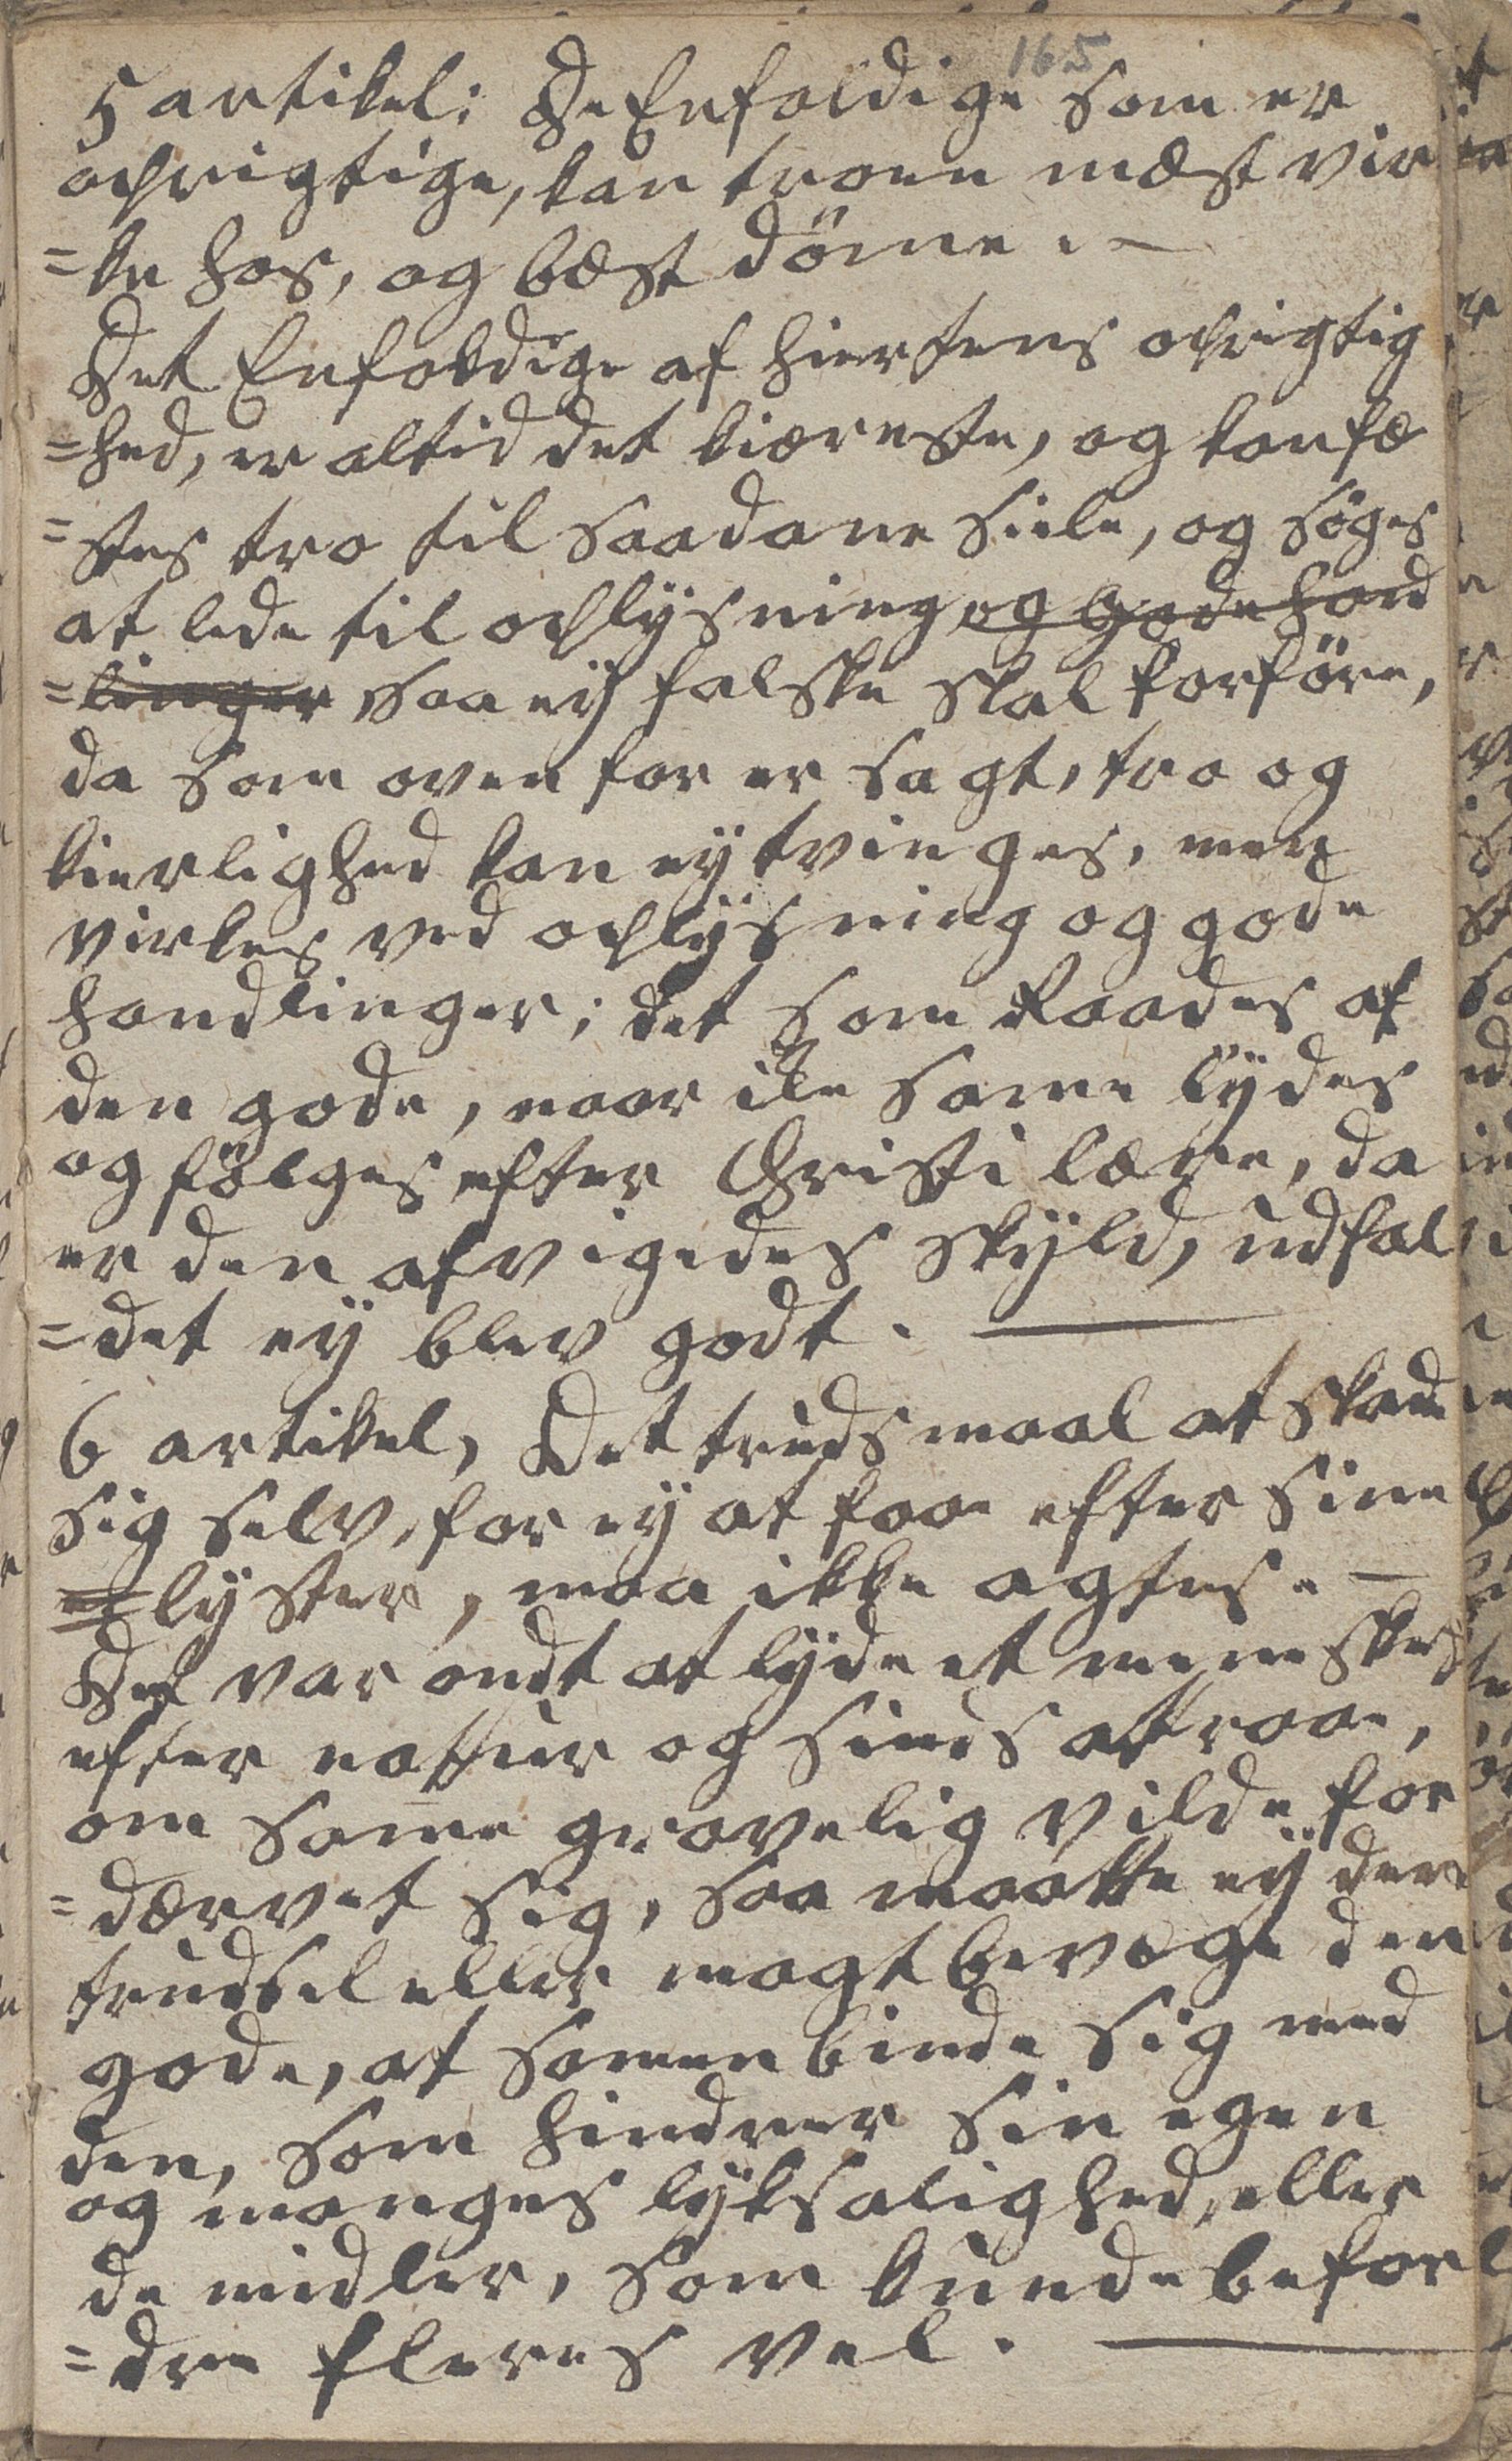 165
5 artikel: De Enfoldige som er
oprigtige, kan troen mæst vir
=ke hos, og bæst dömme. —
Det Enfoldige af hiertens oprigtig
=hed, er altid det kiæreste, og kan fæ
=stes tro til saadane siele, og söges
at lede til oplysning og gode hand
=linger saa ey falske skal forföre,
da som oven for er sagt, tro og
kierlighed kan ey tvinges, men
virkes ved oplysning og gode
handlinger; det som Raades af
den gode, naar ike same lydes
og fölges efter Christi lære, da
er den afvigedes skyld, udfal
=det ey blev godt. —
6 artikel, Det truds maal at skade
sig selv, for ey at faae efter sine
lyster, maa ikke agtes. —
Det var ondt at lyde et meneskes
efter nattur og sinds attraae,
om same gravelig vilde for
=dærvet sig, saa maatte ey der
trudsel eller magt bevæge den
gode, at samenbinde sig med
den, som hindrer sin egen
og manges lyksalighed, eller
de midler, som kunde befor
=dre fleres vel. —